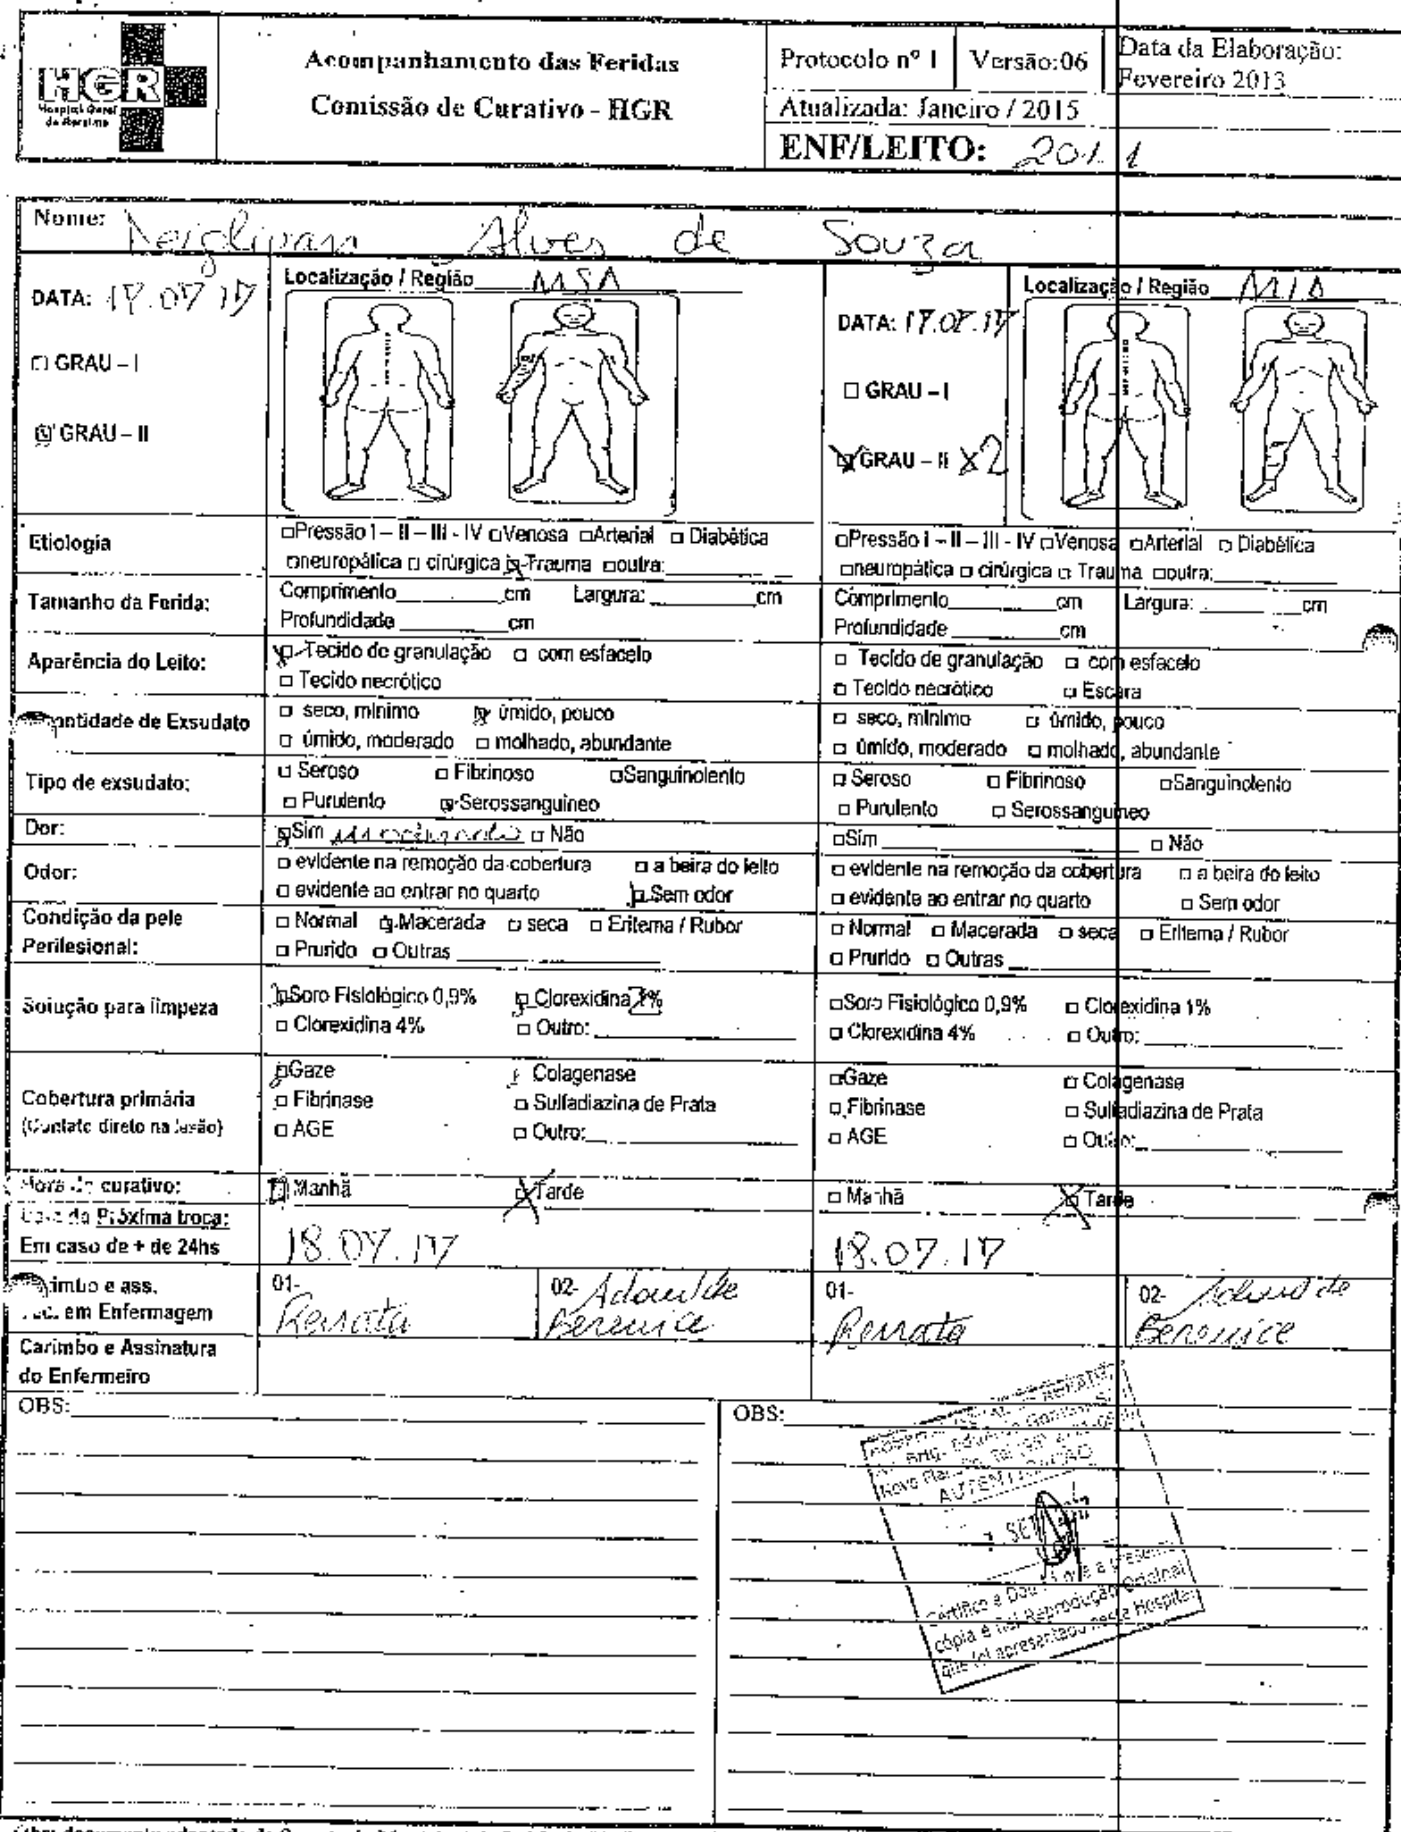 HGR
Hospital Geral de Roraima
Acompanhamento das Feridas
Comissão de Curativo - HGR
Protocolo nº 1
Versão:06
Data da Elaboração:
Fevereiro 2013
Atualizada: Janeiro / 2015
ENF/LEITO: 201.1
Nome: Alves de Souza
DATA: 17.07.17
□ GRAU – I
GRAU – II
Localização / Região
DATA: 17.07.17
□ GRAU – I
GRAU – II X2
Localização / Região MID
Etiologia
□Pressão I – II – III - IV □Venosa □Arterial □ Diabética
□neuropática □ cirúrgica Trauma □outra:
□Pressão I – II – III - IV □Venosa □Arterial □ Diabética
□neuropática □ cirúrgica □ Trauma □outra:
Tamanho da Ferida:
Comprimento cm Largura: cm
Profundidade cm
Comprimento cm Largura: cm
Profundidade cm
Aparência do Leito:
Tecido de granulação □ com esfacelo
□ Tecido necrótico
□ Tecido de granulação □ com esfacelo
□ Tecido necrótico □ Escara
ntidade de Exsudato
□ seco, mínimo úmido, pouco
□ úmido, moderado □ molhado, abundante
□ seco, mínimo □ úmido, pouco
□ úmido, moderado □ molhado, abundante
Tipo de exsudato:
□ Seroso □ Fibrinoso □Sanguinolento
□ Purulento Serossanguíneo
□ Seroso □ Fibrinoso □Sanguinolento
□ Purulento □ Serossanguíneo
Dor:
Sim moderado □ Não
□Sim □ Não
Odor:
□ evidente na remoção da cobertura □ a beira do leito
□ evidente ao entrar no quarto Sem odor
□ evidente na remoção da cobertura □ a beira do leito
□ evidente ao entrar no quarto □ Sem odor
Condição da pele
Perilesional:
□ Normal Macerada □ seca □ Eritema / Rubor
□ Prurido □ Outras
□ Normal □ Macerada □ seca □ Eritema / Rubor
□ Prurido □ Outras
Solução para limpeza
Soro Fisiológico 0,9% Clorexidina
□ Clorexidina 4% □ Outro:
□Soro Fisiológico 0,9% □ Clorexidina 1%
□ Clorexidina 4% □ Outro:
Cobertura primária
(Contato direto na lesão)
Gaze Colagenase
□ Fibrinase □ Sulfadiazina de Prata
□ AGE □ Outro:
□Gaze □ Colagenase
□ Fibrinase □ Sulfadiazina de Prata
□ AGE □ Outro:
Hora do curativo:
Manhã Tarde
□ Manhã Tarde
Data da Próxima troca:
Em caso de + de 24hs
18.07.17
18.07.17
imbo e ass.
em Enfermagem
01- Renata
02- Berenice
01- Renata
02- Berenice
Carimbo e Assinatura
do Enfermeiro
OBS:
OBS:
AUTENTICAÇÃO
SET
Certifico e Dou
cópia é fiel Reprodução Original
que foi apresentado nesta Hospital